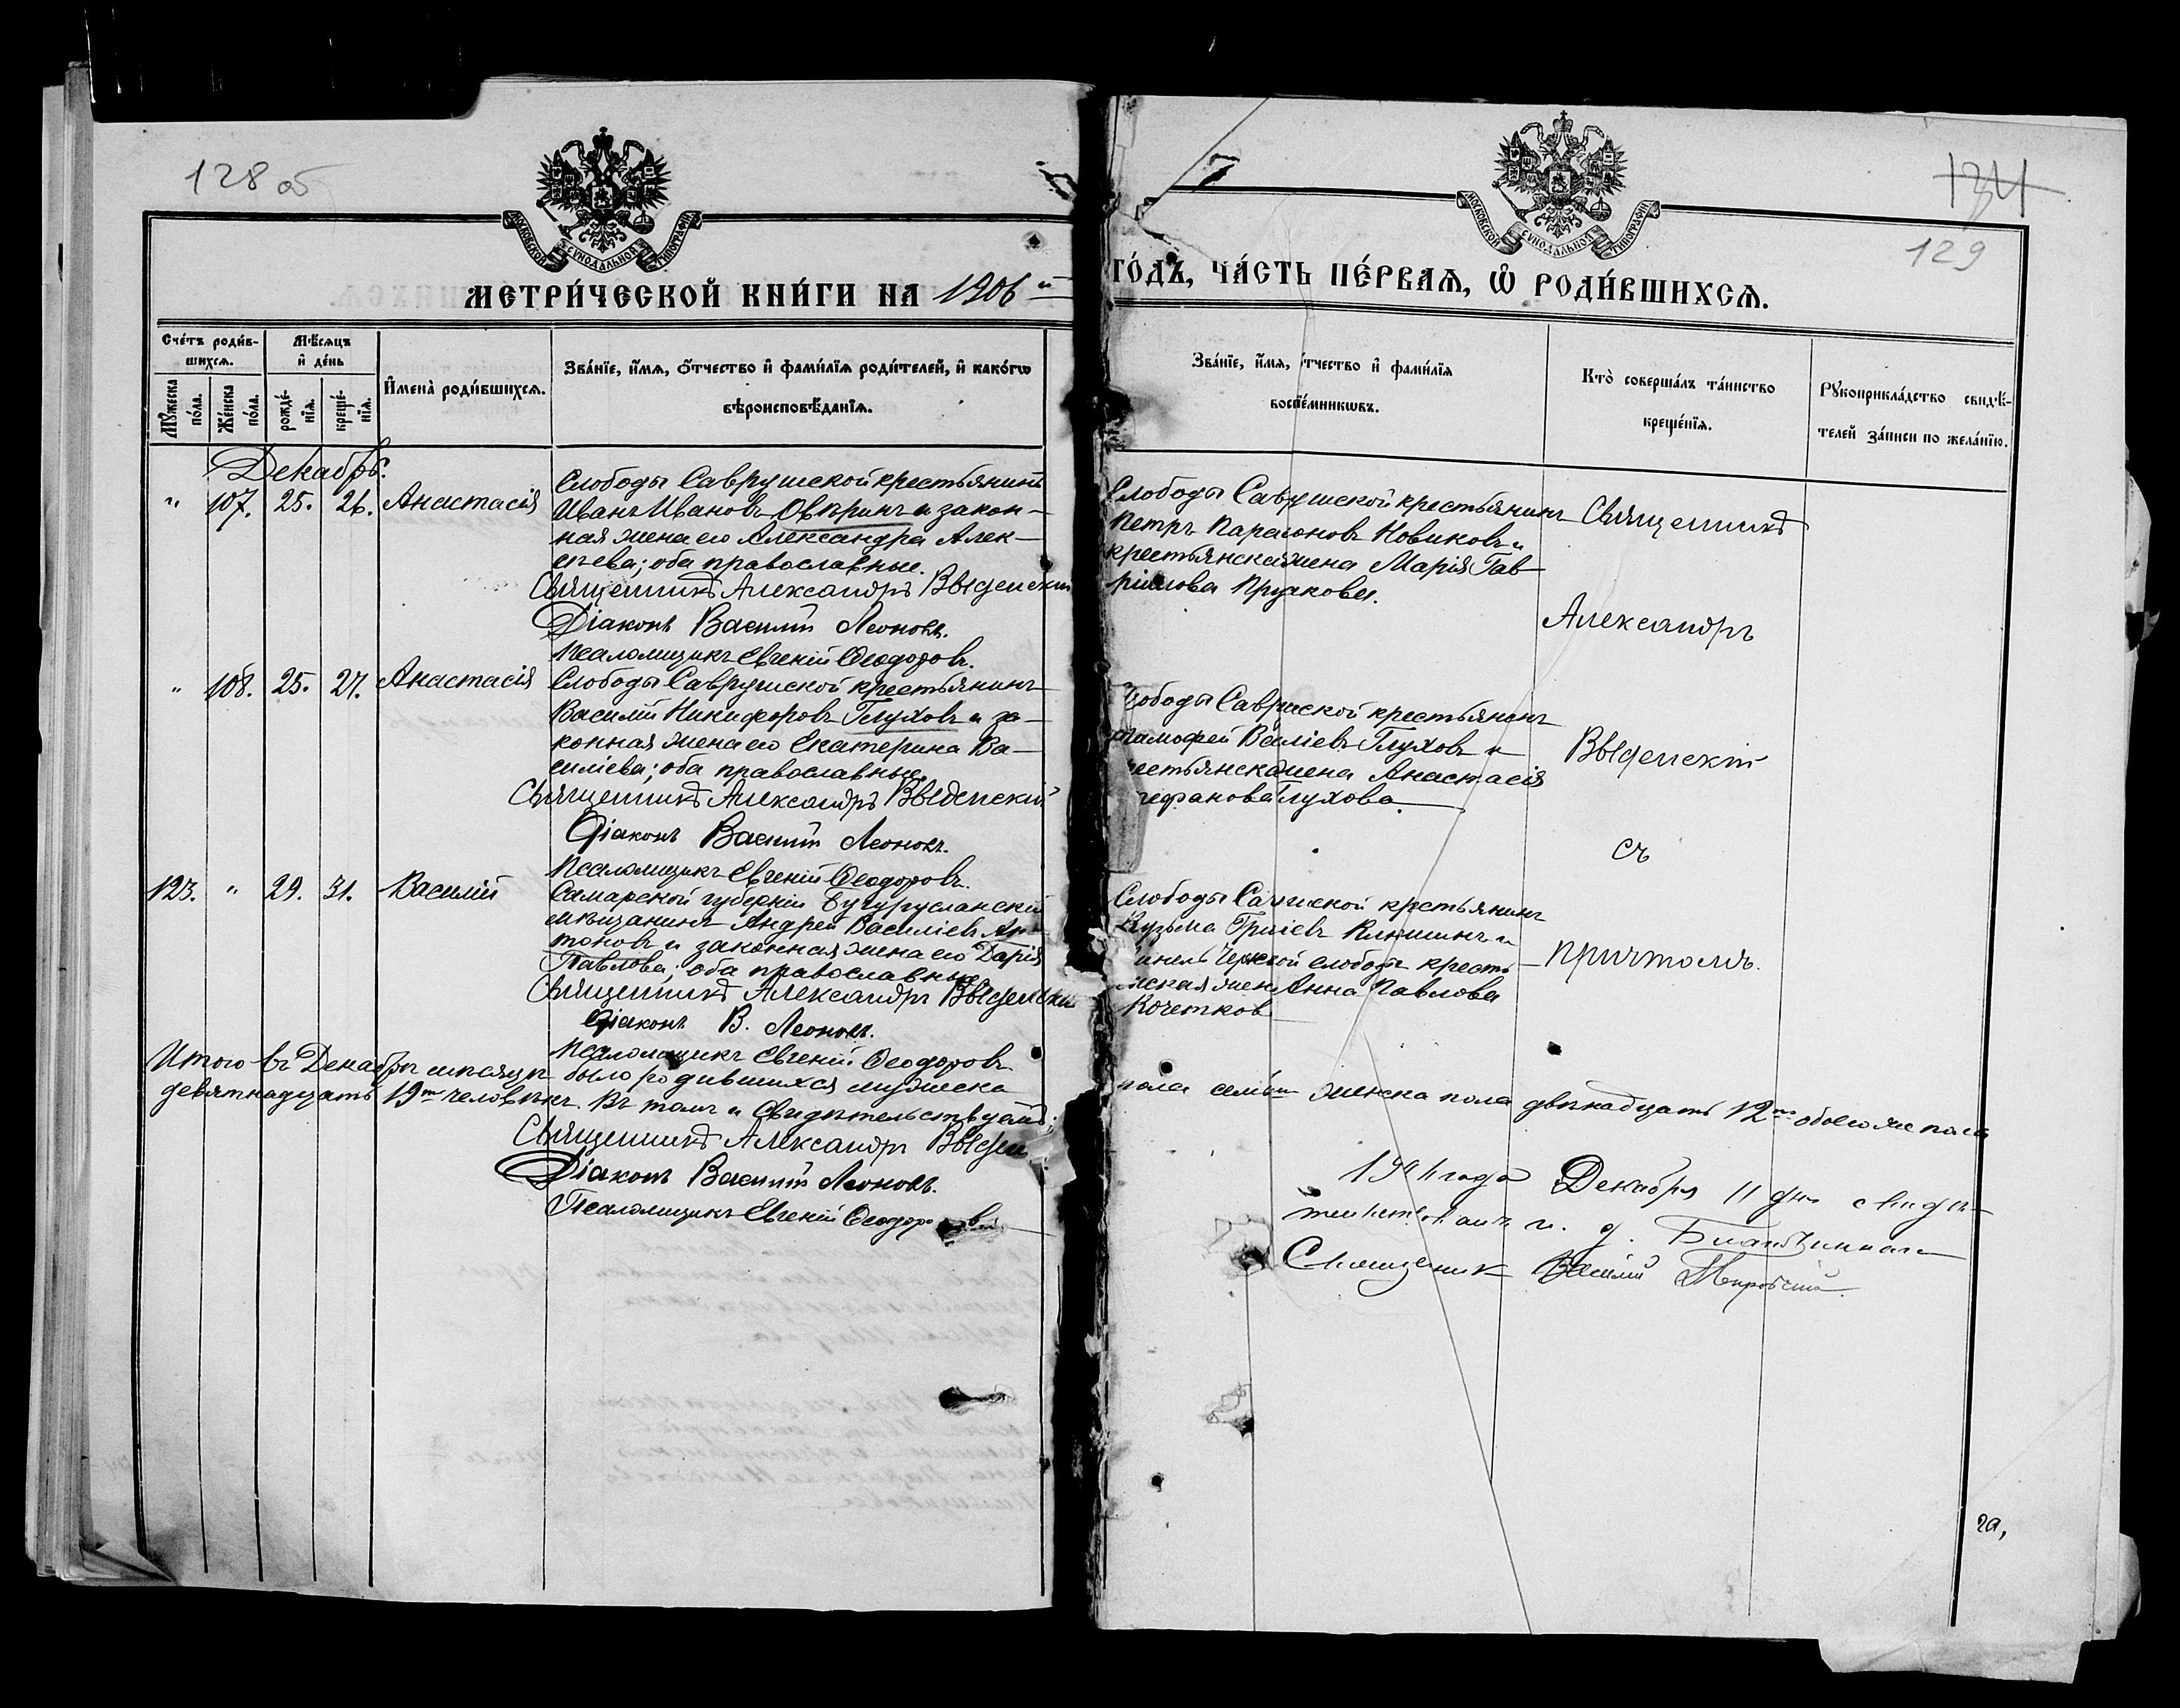 128 об
134
129
МОСКОВСКОЙ СѴНОДАЛЬНОЙ ТИПОГРАФІИ
МОСКОВСКОЙ СѴНОДАЛЬНОЙ ТИПОГРАФІИ
МЕТРИ́ЧЕСКОЙ КНИ́ГИ НА 1906й
ГО́ДЪ, ЧА́СТЬ ПЕ́РВАѦ, Ѡ҆ РОДИ́ВШИХСѦ.
Сче́тъ роди́в-
шихсѧ.
Мꙋ́жеска по́ла.
Же́нска по́ла.
Мѣ́сѧцъ
и҆ де́нь
рожде́-
нїѧ.
креще́-
нїѧ.
И҆мена̀ роди́вшихсѧ.
Зва́нїе, и҆́мѧ, ѻ҆́тчество и҆ фами́лїѧ роди́телей, и҆ како́гѡ
вѣроисповѣ́данїѧ.
Зва́нїе, и҆́мѧ, ѻ҆́тчество и҆ фами́лїѧ
воспрїе́мникѡвъ.
Кто̀ соверша́лъ та́инство
креще́нїѧ.
Рꙋкоприкла́дство свидѣ́-
телей за́писи по жела́нїю.
Декабрь.
" 107. 25. 26. Анастасія
Слободы Саврушской крестьянинъ
Иванъ Ивановъ Овѣринъ и закон-
ная жена его Александра Алек-
сѣева; оба православные.
Священникъ Александръ Введенскій
Діаконъ Василій Леоновъ.
Псаломщикъ Евгеній Ѳеодоровъ.
Слободы Саврушской крестьянинъ
Петръ Парамоновъ Новиковъ и
крестьянская жена Марія Гав-
рилова
Священникъ
Александръ
Введенскій
съ
причтомъ.
" 108. 25. 27. Анастасія
Слободы Саврушской крестьянинъ
Василій Никифоровъ Глуховъ и за-
конная жена его Екатерина Ва-
силіева; оба православные.
Священникъ Александръ Введенскій
Діаконъ Василій Леоновъ.
Псаломщикъ Евгеній Ѳеодоровъ.
крестьянинъ
Глуховъ и
жена Анастасія
Глухова.
123. " 29. 31. Василій
Самарской губерніи Бугурусланскій
мѣщанинъ Андрей Василіевъ Ан-
тоновъ и законная жена его Дарія
Павлова; оба православные.
Священникъ Александръ Введенскій
Діаконъ В. Леоновъ.
Псаломщикъ Евгеній Ѳеодоровъ
Слободы крестьянинъ
Кузьма и
слободы кресть-
Анна Павлова
Кочетков
Итого въ Декабрѣ мѣсяцѣ было родившихся мужеска
пола семь женска пола двѣнадцать 12ть обоего же пола
девятнадцать 19ть человѣкъ. Въ томъ и свидѣтельствуемъ;
Священникъ Александръ Введен
Діаконъ Василій Леоновъ.
Псаломщикъ Евгеній Ѳеодоровъ
года Декабря 11 дня свидѣ-
и. д. Благочиннаго
Священникъ Василій